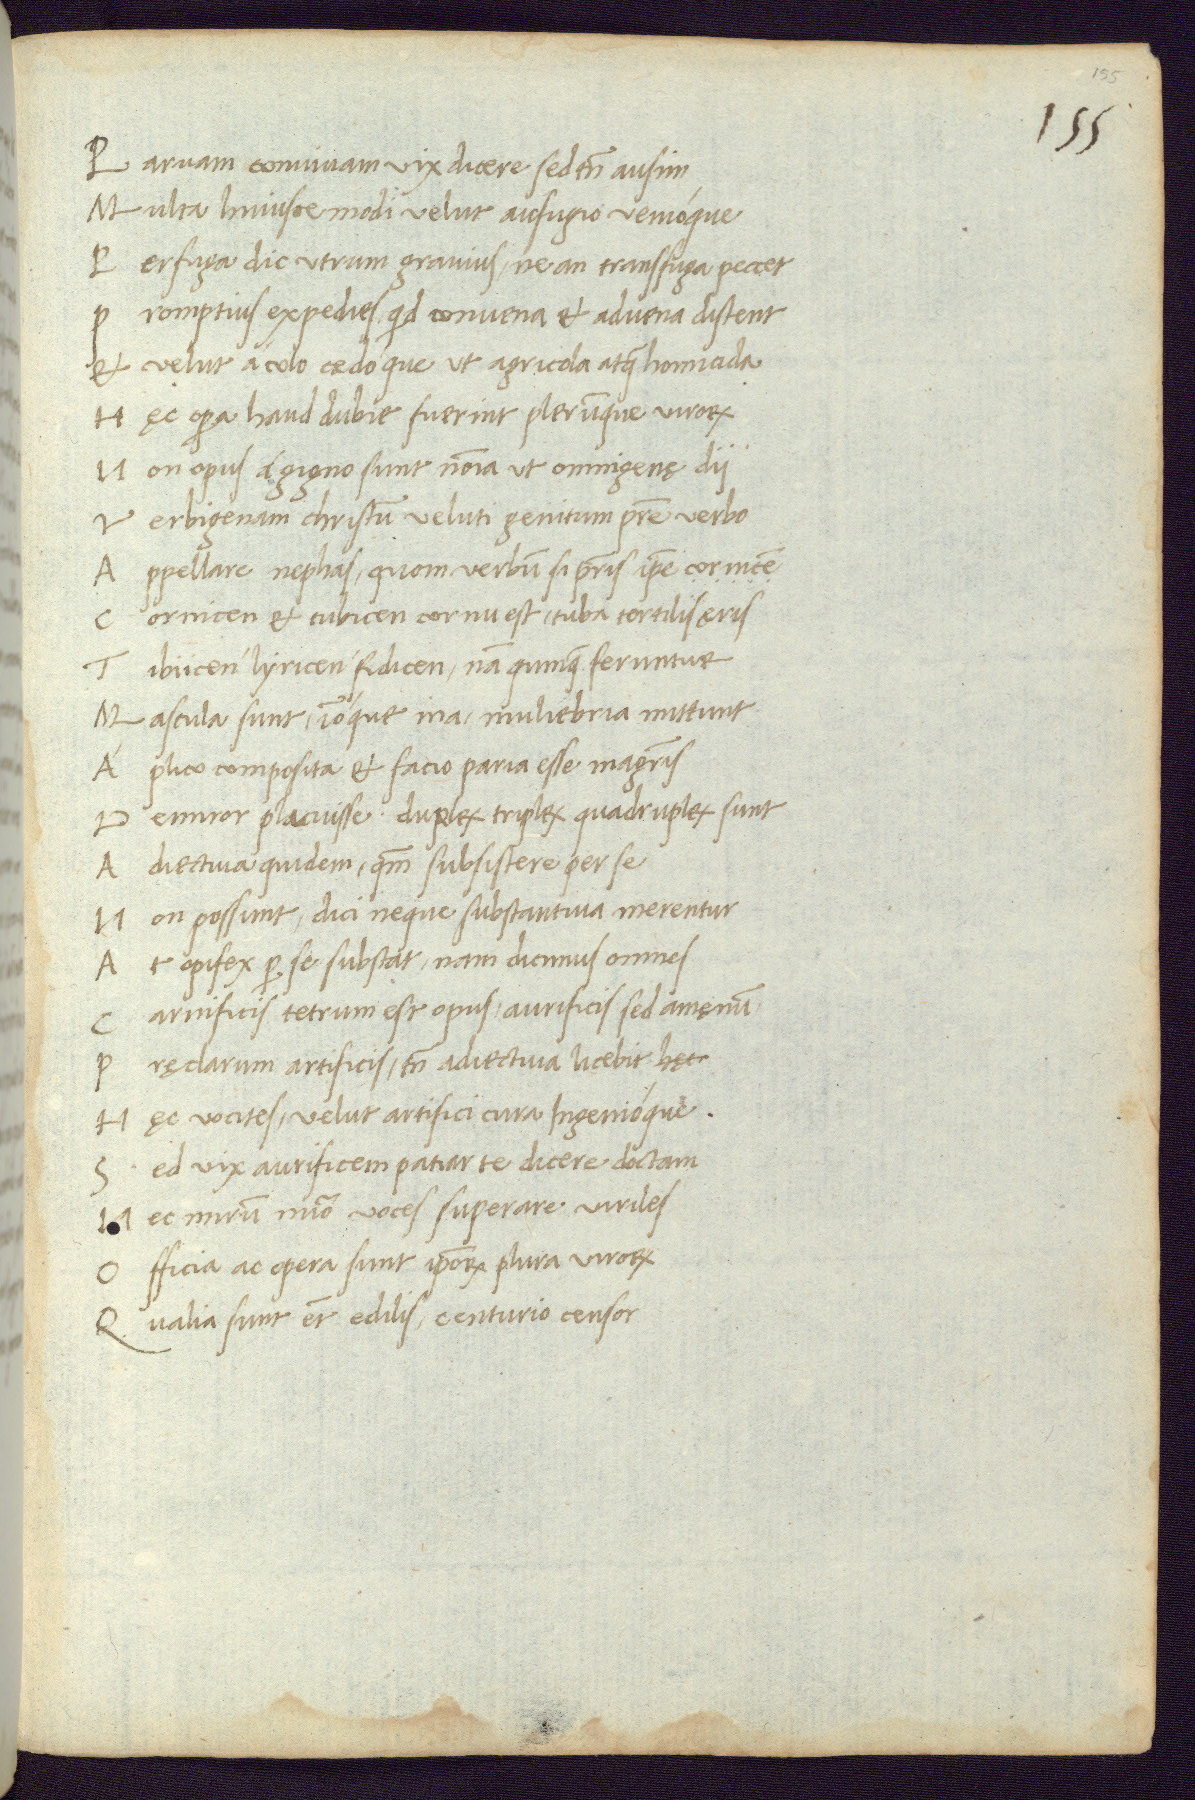 155
155
Paruam conuiuam vix dicere sed tñ ausim
Multa huiusce modi velut aufugio venióque
Perfuga dic vtrum grauius, ne an transfuga peccet
Promptius expedies qd conuena et aduena distent
Et velut á colo cędóque ut agricola atq homicida
Hęc opa haud dubie fuerint plerūque virorꝝ
Non opus á gigno sunt noīa ut omnigenę dij
Verbigenam christū veluti genitum pre verbo
Appellare nephas, quom verbū sí pris ipe cornicē
Cornicen et tubicen cornu est, tuba tortilis ęris
Tibijcen lyricen fidicen, nā quinq feruntur
Mascula sunt, ióque ina, muliebria mittunt
Á plico composita et facio paria esse magris
Demiror placuisse. duplex triplex quadruplex sunt
Adiectiua quidem, qm̄ subsistere per se
Non possunt, dici neque substantiua merentur
At opifex p se substat, nam dicimus omnes
Carnificis tetrum est opus, aurificis sed amęnū
Pręclarum artificis, tñ adiectiua licebit
Hęc vocites, velut artifici cura Ingenióque.
Sed vix aurificem patiar te dicere doctam
Nec mirū nūo voces superare viriles
Officia ac opera sunt ipōrꝝ plura virorꝝ
Qualia sunt et edilis, centurio censor